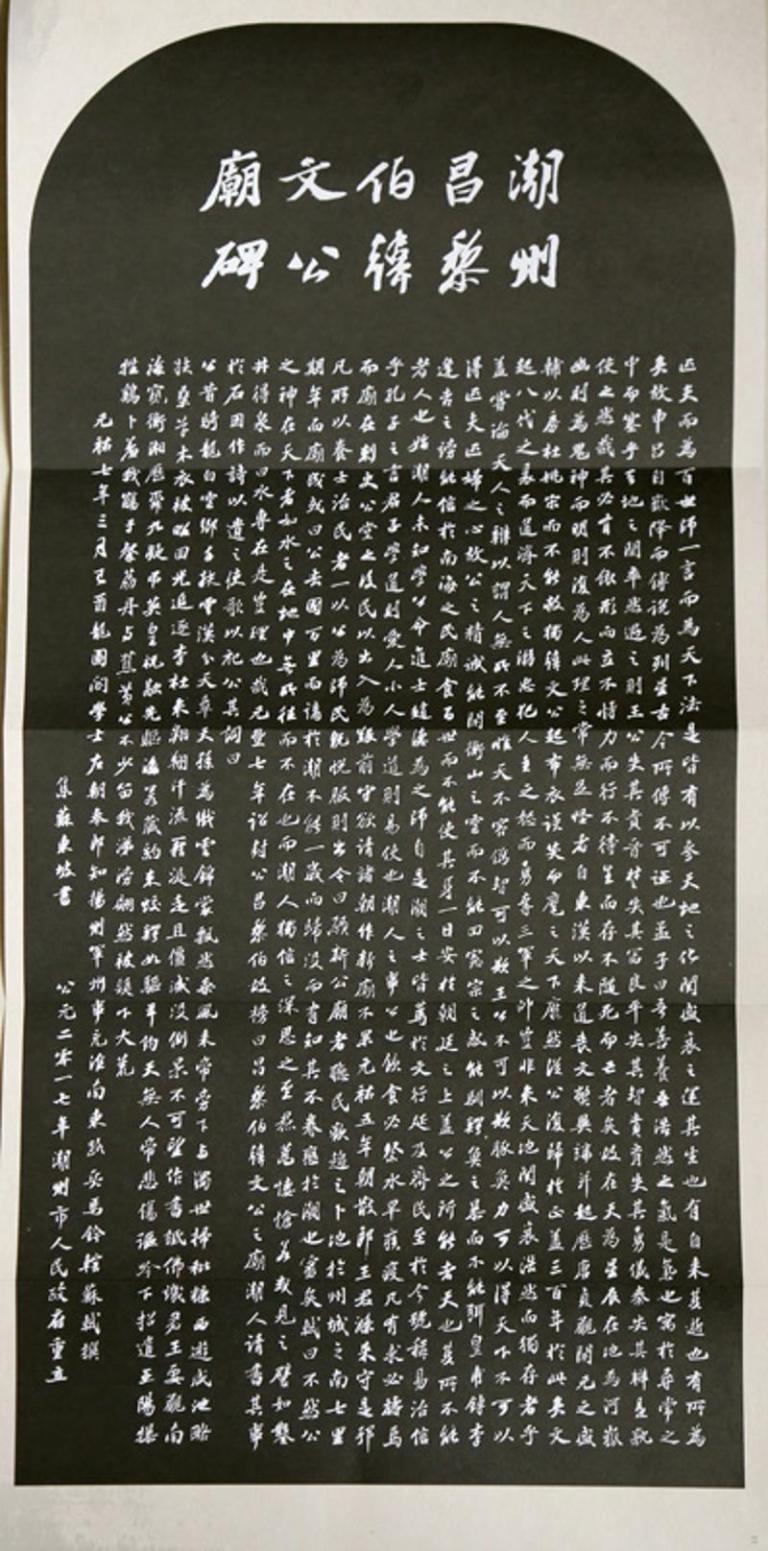 潮州
昌黎
伯韓
文公
廟碑
匹夫而為百世師一言而為天下法是皆有以參天地之化關盛衰之運其生也有自來其逝也有所為
矣故申呂自嶽降而傅說為列星古今所傳不可誣也孟子曰吾善養吾浩然之氣是氣也寓於尋常之
中而塞乎天地之間卒然遇之則王公失其貴晉楚失其富良平失其智賁育失其勇儀秦失其辯是孰
使之然哉其必有不依形而立不恃力而行不待生而存不隨死而亡者矣故在天為星辰在地為河嶽
幽則為鬼神而明則復為人此理之常無足怪者自東漢以來道喪文弊異端並起歷唐貞觀開元之盛
輔以房杜姚宋而不能救獨韓文公起布衣談笑而麾之天下靡然從公復歸於正蓋三百年於此矣文
起八代之衰而道濟天下之溺忠犯人主之怒而勇奪三軍之帥豈非參天地關盛衰浩然而獨存者乎
蓋嘗論天人之辨以謂人無所不至惟天不容偽智可以欺王公不可以欺豚魚力可以得天下不可以
得匹夫匹婦之心故公之精誠能開衡山之雲而不能回憲宗之惑能馴鱷魚之暴而不能弭皇甫鎛李
逢吉之謗能信於南海之民廟食百世而不能使其身一日安於朝廷之上蓋公之所能者天也其所不能
者人也始潮人未知學公命進士趙德為之師自是潮之士皆篤於文行延及齊民至於今號稱易治信
乎孔子之言君子學道則愛人小人學道則易使也潮人之事公也飲食必祭水旱疾疫凡有求必禱焉
而廟在刺史公堂之後民以出入為艱前守欲請諸朝作新廟不果元祐五年朝散郎王君滌來守是邦
凡所以養士治民者一以公為師民既悅服則出令曰願新公廟者聽民歡趨之卜地於州城之南七里
期年而廟成或曰公去國萬里而謫於潮不能一歲而歸沒而有知其不眷戀於潮也審矣軾曰不然公
之神在天下者如水之在地中無所往而不在也而潮人獨信之深思之至焄蒿悽愴若或見之譬如鑿
井得泉而曰水專在是豈理也哉元豐七年詔封公昌黎伯故榜曰昌黎伯韓文公之廟潮人請書其事
於石因作詩以遺之使歌以祀公其詞曰
公昔騎龍白雲鄉手抉雲漢分天章天孫為織雲錦裳飄然乘風來帝旁下與濁世掃秕糠西遊咸池略
扶桑草木衣被昭回光追逐李杜參翱翔汗流籍湜走且僵滅沒倒景不可望作書詆佛譏君王要觀南
海窺衡湘歷舜九嶷弔英皇祝融先驅海若藏約束蛟鱷如驅羊鈞天無人帝悲傷謳吟下招遣巫陽犦
牲雞卜羞我觴於粲荔丹與蕉黃公不少留我涕滂翩然被髮下大荒
元祐七年三月己酉龍圖閣學士左朝奉郎知揚州軍州事充淮南東路兵馬鈐轄蘇軾撰
集蘇東坡書 公元二零一七年潮州市人民政府重立